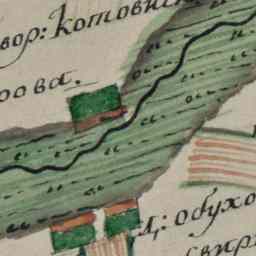 вор: Котовни
рова.
Д: обухо
Свир